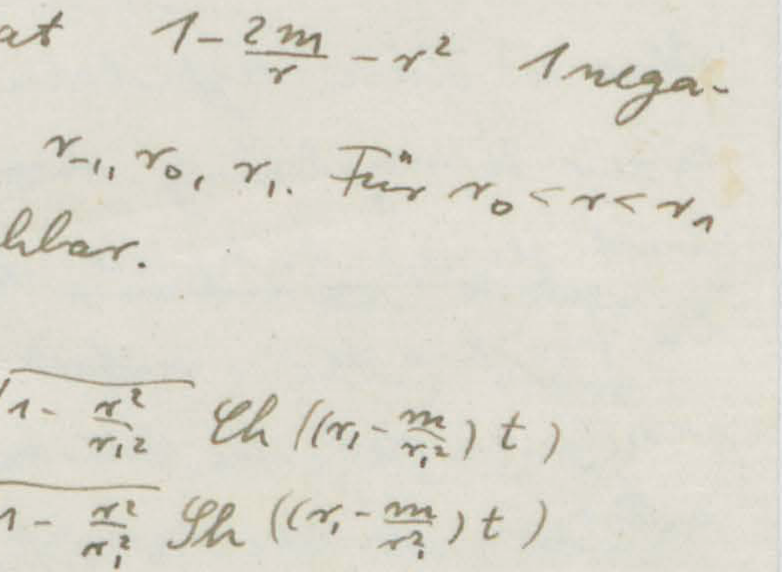 at 1 - 2m/r - r² 1 nega-
r₋₁, r₀, r₁. Für r₀ < r < r₁
hbar.
√(1 - r²/r₁²) Ch ((r₁ - m/r₁²) t)
√(1 - r²/r₁²) Sh ((r₁ - m/r₁²) t)